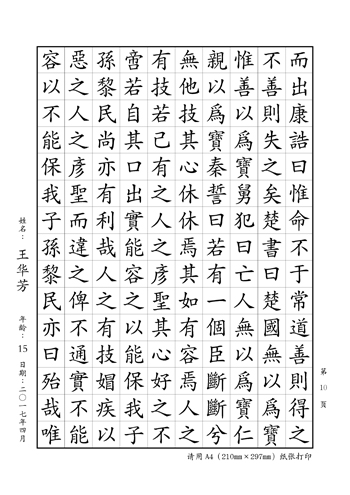 而出康誥曰惟命不于常道善則得之
不善則失之矣楚書曰楚國無以爲寶
惟善以爲寶舅犯曰亡人無以爲寶仁
親以爲寶秦誓曰若有一個臣斷斷兮
無他技其心休休焉其如有容焉人之
有技若己有之人之彥聖其心好之不
啻若自其口出實能容之以能保我子
孫黎民尚亦有利哉人之有技媢疾以
惡之人之彥聖而違之俾不通實不能
容以不能保我子孫黎民亦曰殆哉唯
姓名：王华芳 年龄：15 日期：二〇一七年四月
第10页
请用A4（210mm×297mm）纸张打印